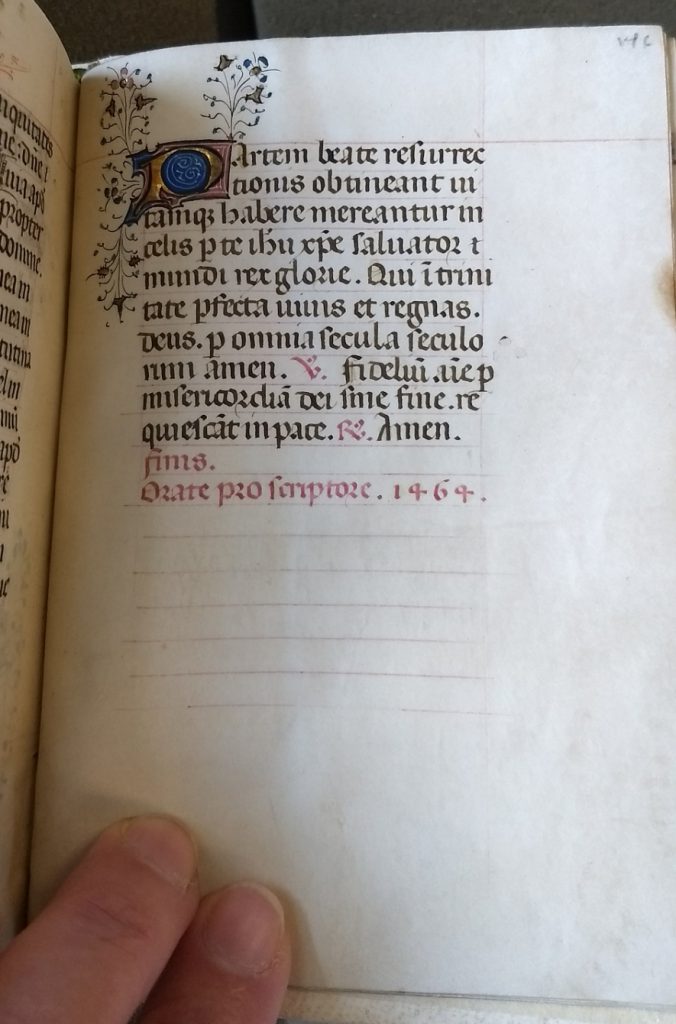 iniquitatis
Partem beate resurrec
tionis obtineant ui
tamqꝫ habere mereantur in
celis p te ihu xpe saluator ⁊
mundi rex glorie. Qui ī trini
tate pfecta uiuis et regnas.
deus. p omnia secula seculo
rum amen. ℣. Fideliū aīe p
misericordiā dei sine fine. re
quiescāt in pace. ℟. Amen.
finis.
Orate pro scriptore. 1464.